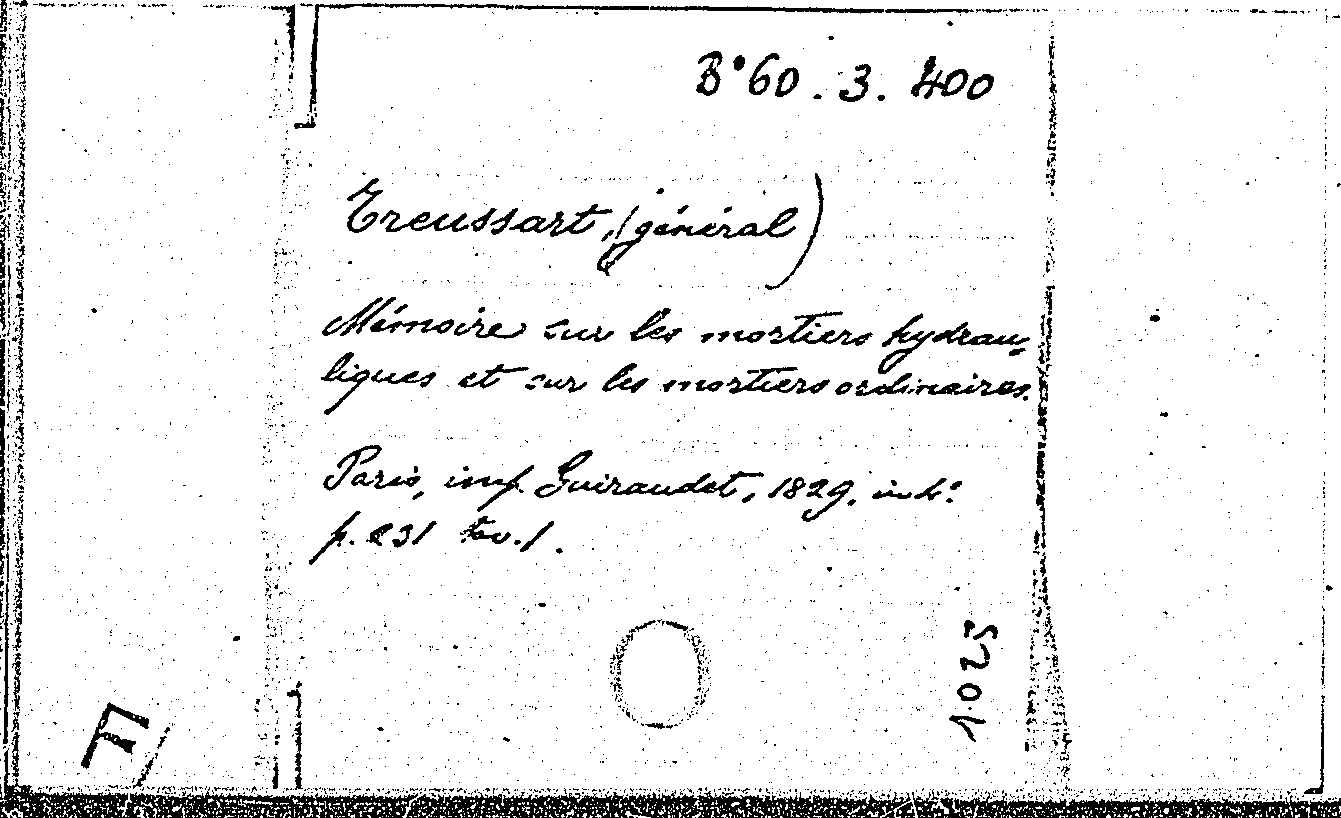 B°60.3.400
Treussart, (général)
Mémoire sur les mortiers hydrau-
liques et sur les mortiers ordinaires.
Paris, imp. Guiraudet, 1829, in 4°.
p. 231 tav. 1.
1023
FI